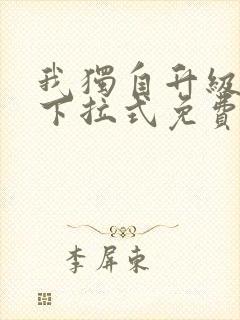 我獨自升級
下拉式免費
李屏東